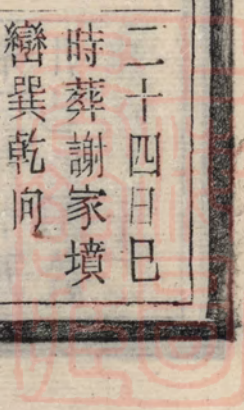 二十四日巳
時葬謝家墳
巒巽乾向